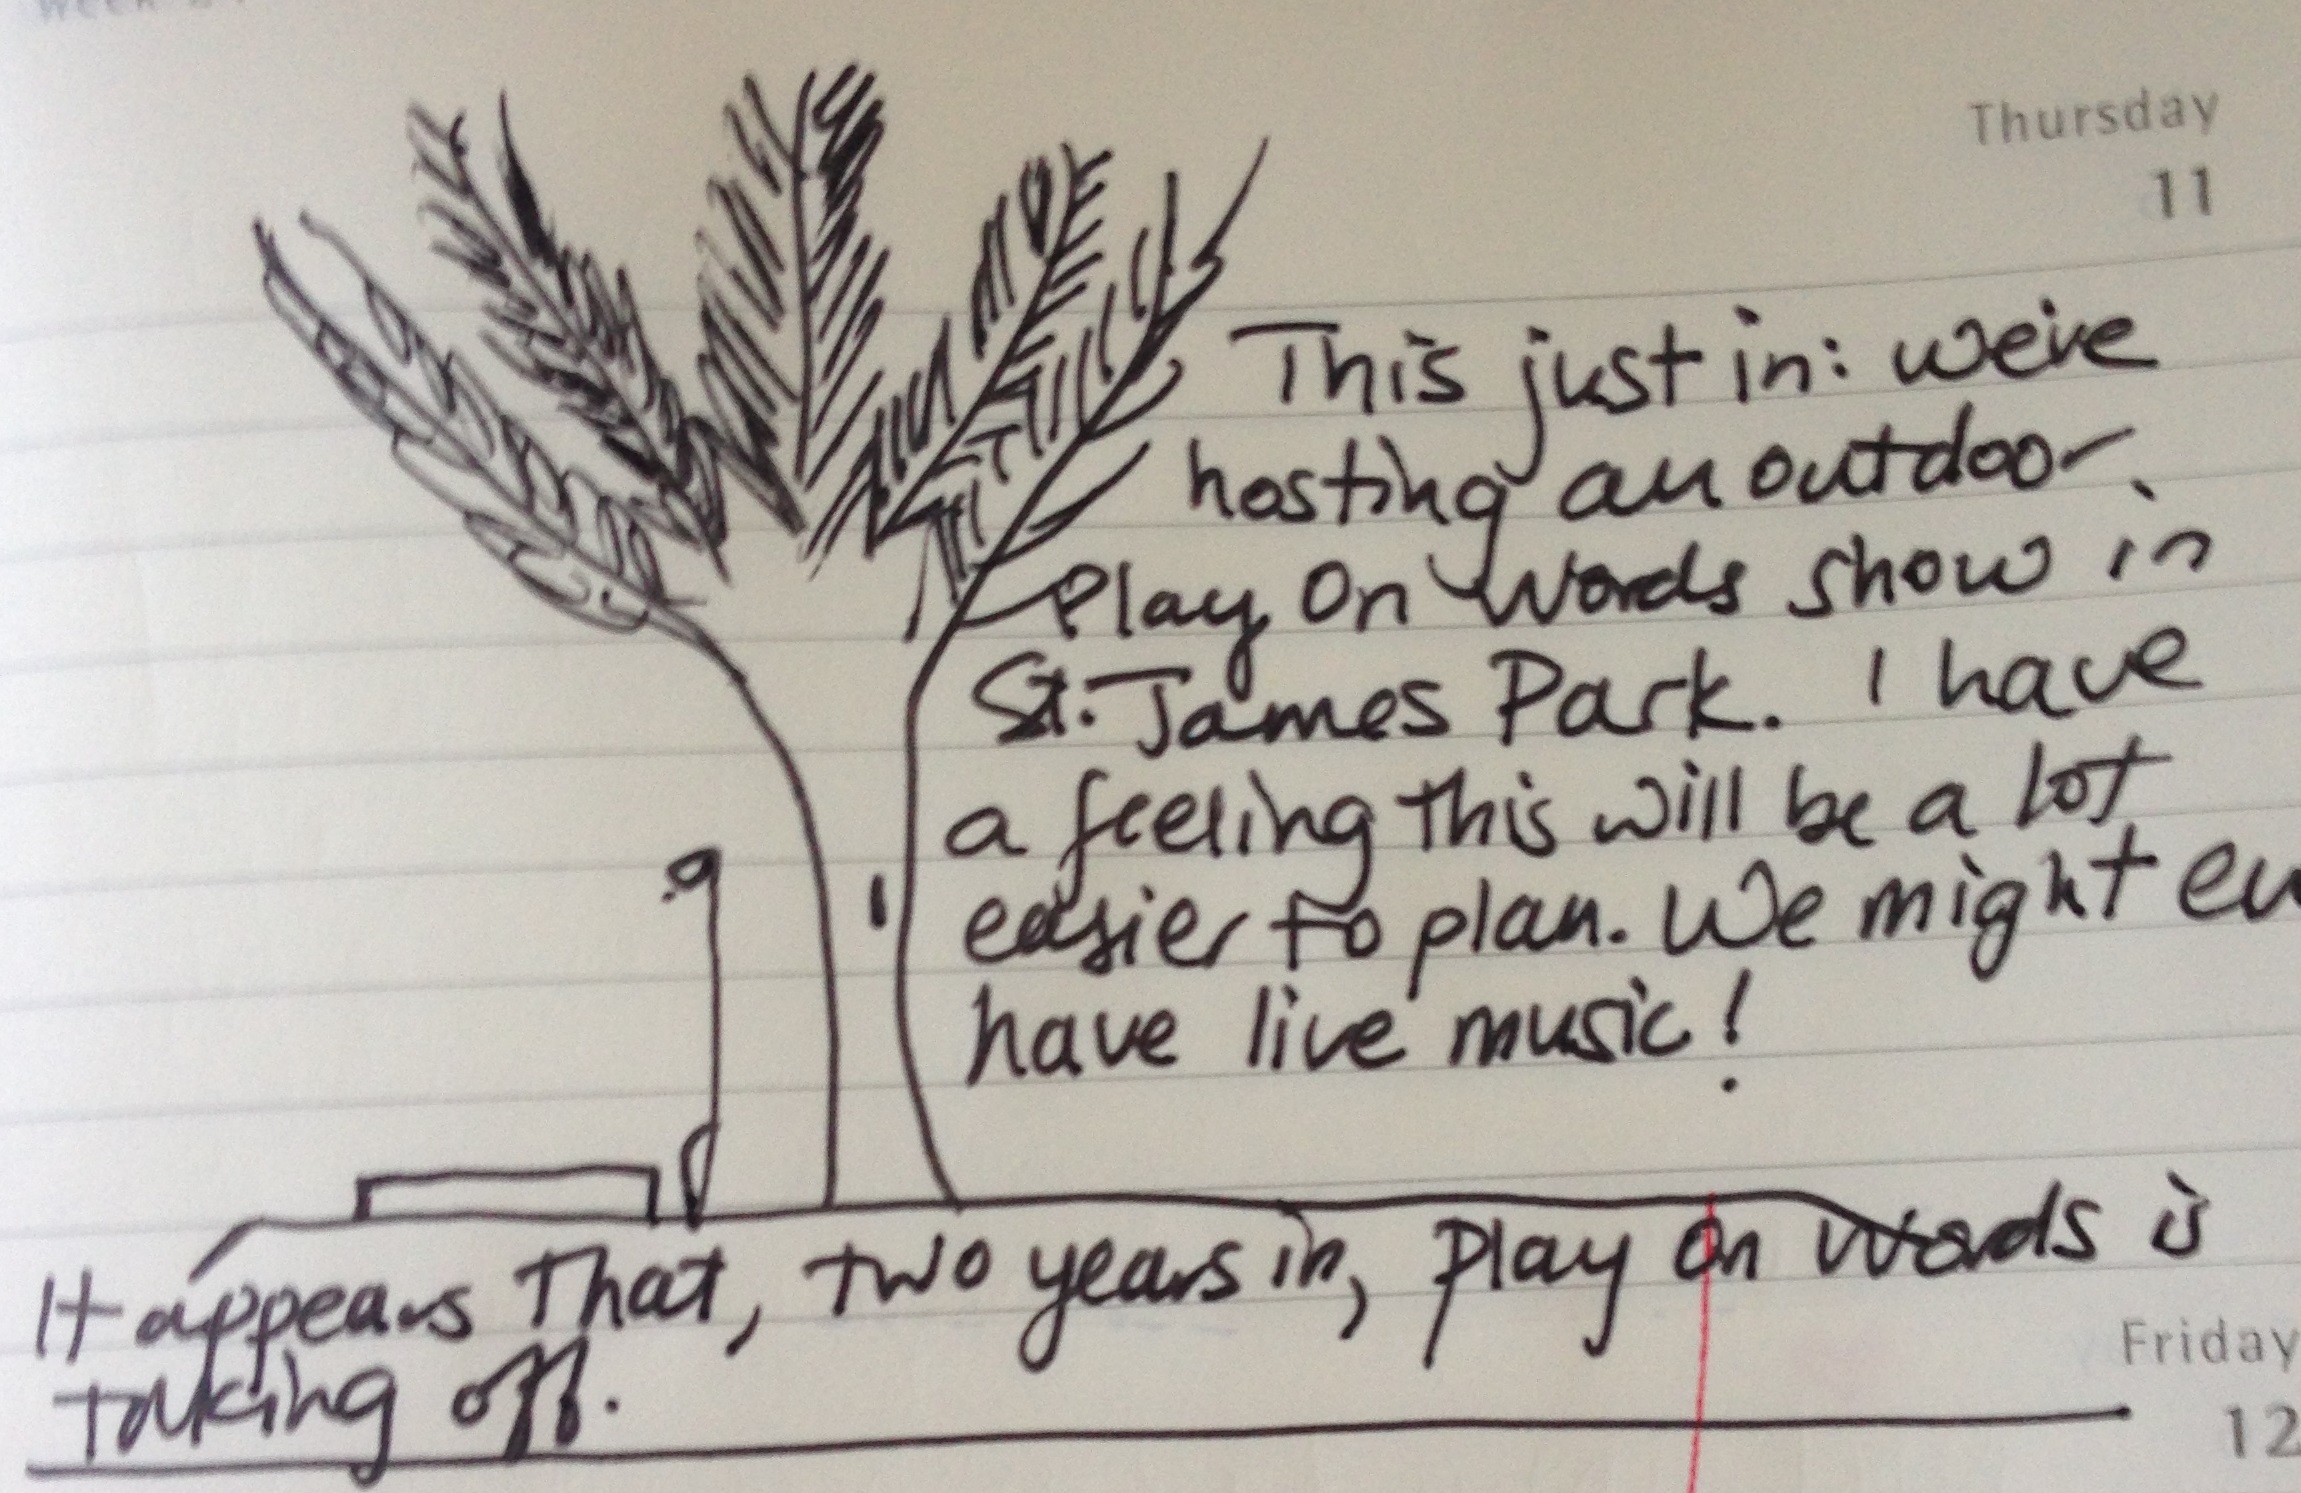 Thursday
11
This just in: we're
hosting an outdoor
Play On Words show in
St. James Park. I have
a feeling this will be a lot
easier to plan. We might
have live music!
It appears that, two years in, Play On Words is
taking off.
Friday
12